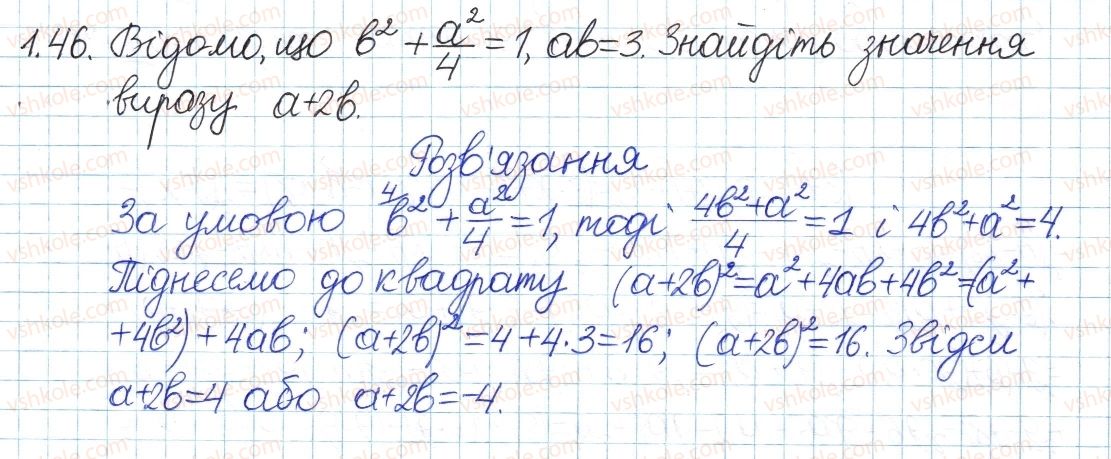 1.46. Відомо, що b² + a²/4 = 1, ab=3. Знайдіть значення
виразу a+2b.
Розв'язання
За умовою ⁴⁄b² + a²/4 = 1, тоді (4b²+a²)/4 = 1 і 4b²+a²=4.
Піднесемо до квадрату (a+2b)²=a²+4ab+4b²=(a²+
+4b²)+4ab; (a+2b)²=4+4·3=16; (a+2b)²=16. Звідси
a+2b=4 або a+2b=-4.